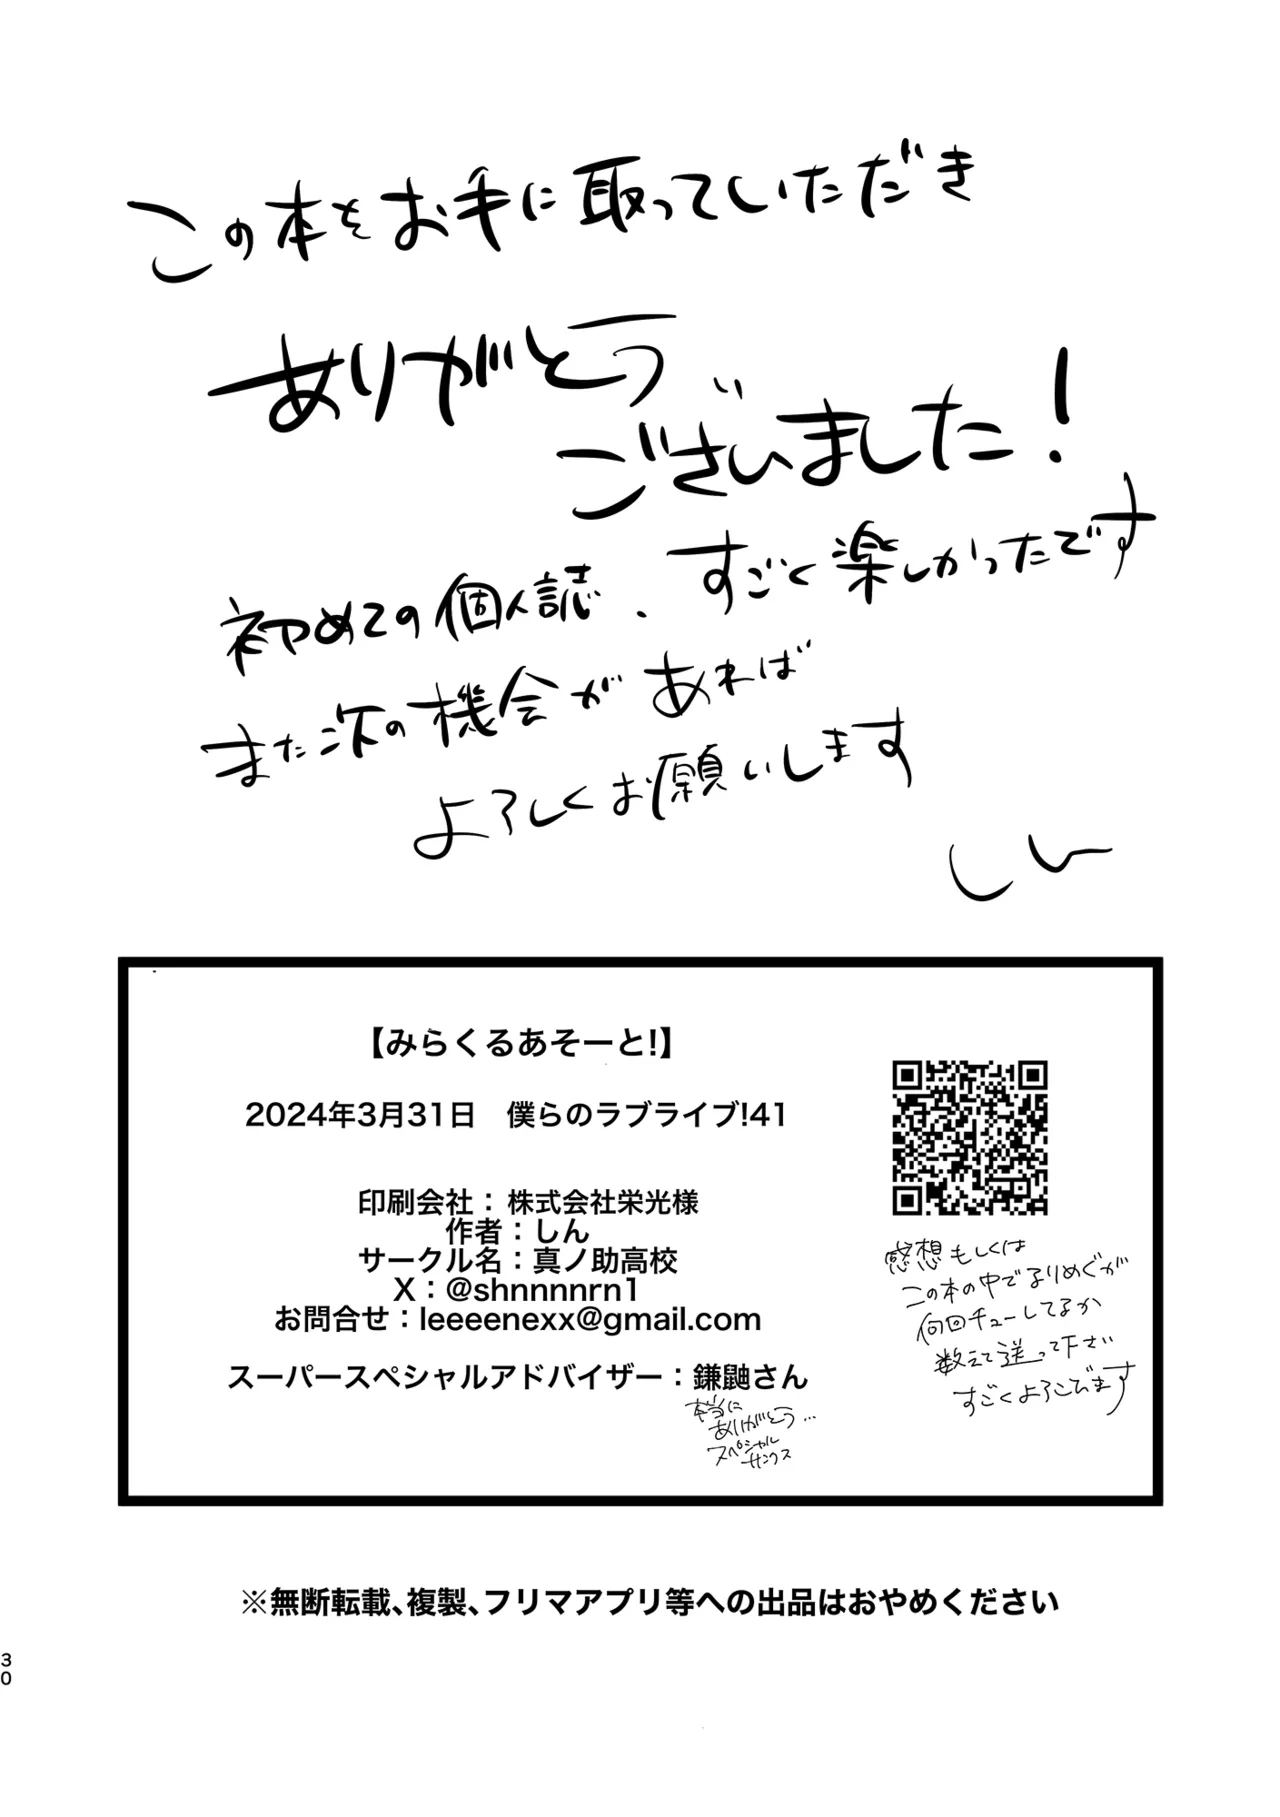 この本をお手に取っていただき
ありがとう
ございました!
初めての個人誌、すごく楽しかったです
また次の機会があれば
よろしくお願いします
しん
【みらくるあそーと!】
2024年3月31日 僕らのラブライブ!41
印刷会社：株式会社栄光様
作者：しん
サークル名：真ノ助高校
X：@shnnnnrn1
お問合せ：leeeenexx@gmail.com
スーパースペシャルアドバイザー：鎌鼬さん
本当に
ありがとう…
スペシャル
サンクス
感想もしくは
この本の中でるりめぐが
何回チューしてるか
数えて送って下さい
すごくよろこびます
※無断転載、複製、フリマアプリ等への出品はおやめください
30